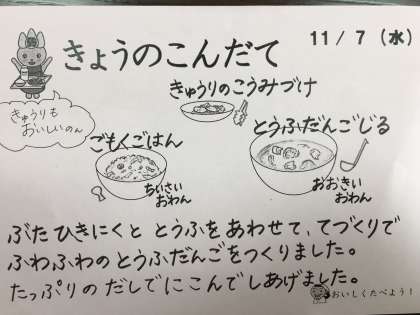 きょうのこんだて
11/7（水）
きゅうりのこうみづけ
きゅうりも
おいしいのん
ごもくごはん
とうふだんごじる
ちいさい
おわん
おおきい
おわん
ぶたひきにくと とうふを あわせて、てづくりで
ふわふわの とうふだんごをつくりました。
たっぷりの だしで にこんで しあげました。
おいしくたべよう！